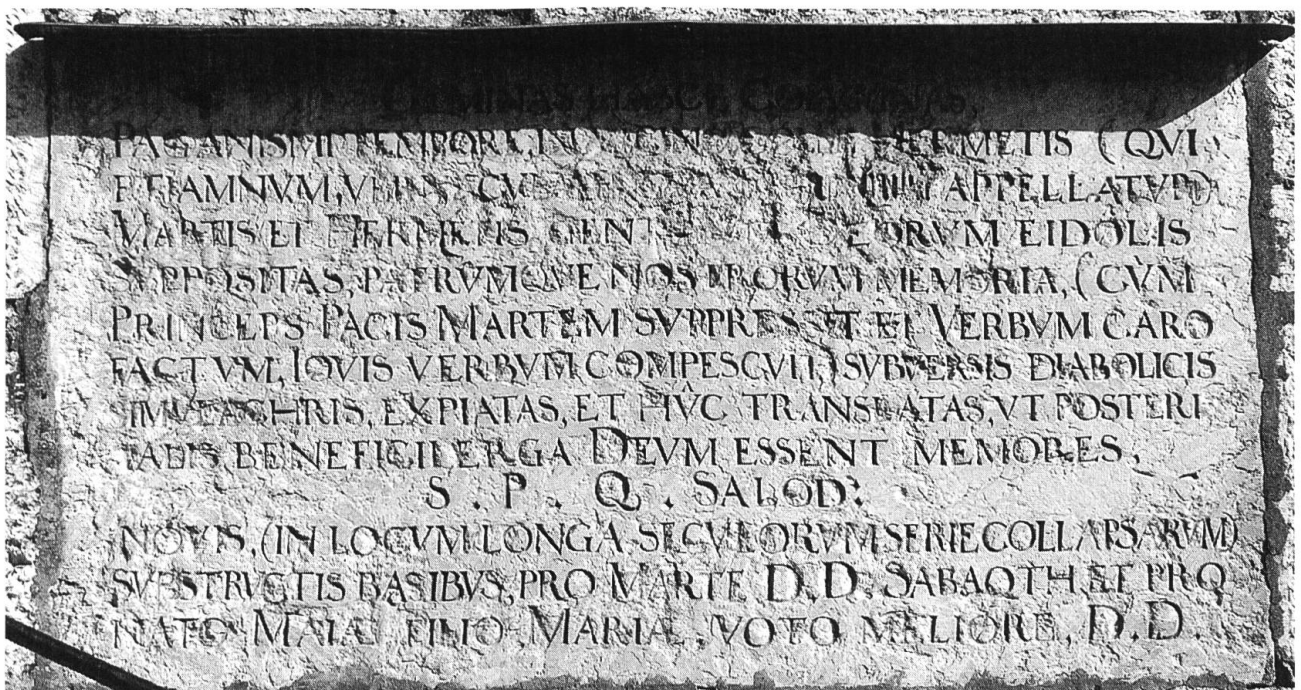 GEMINAS HASCE COLVMNAS,
PAGANISMI TEMPORE, IN HERMETIS (QVI
ETIAMNVM, APPELLATVR)
MARTIS ET HERMETIS GENT EORVM EIDOLIS
SVPPOSITAS, PATRVMQVE NOSTRORVM MEMORIA, (CVM
PRINCEPS PACIS MARTEM SVPPRESSIT ET VERBVM CARO
FACTVM, IOVIS VERBVM COMPESCVIT,) SVBVERSIS DIABOLICIS
SIMVLACHRIS, EXPIATAS, ET HVC TRANSLATAS, VT POSTERI
TATIS BENEFICII ERGA DEVM ESSENT MEMORES,
S . P . Q . SALOD:
NOVIS, (IN LOCVM LONGA SECVLORVM SERIE COLLAPSARVM)
SVBSTRVCTIS BASIBVS, PRO MARTE D.D. SABAOTH, ET PRO
NATO MAIÆ FILIO MARIÆ, VOTO MELIORE, D.D.